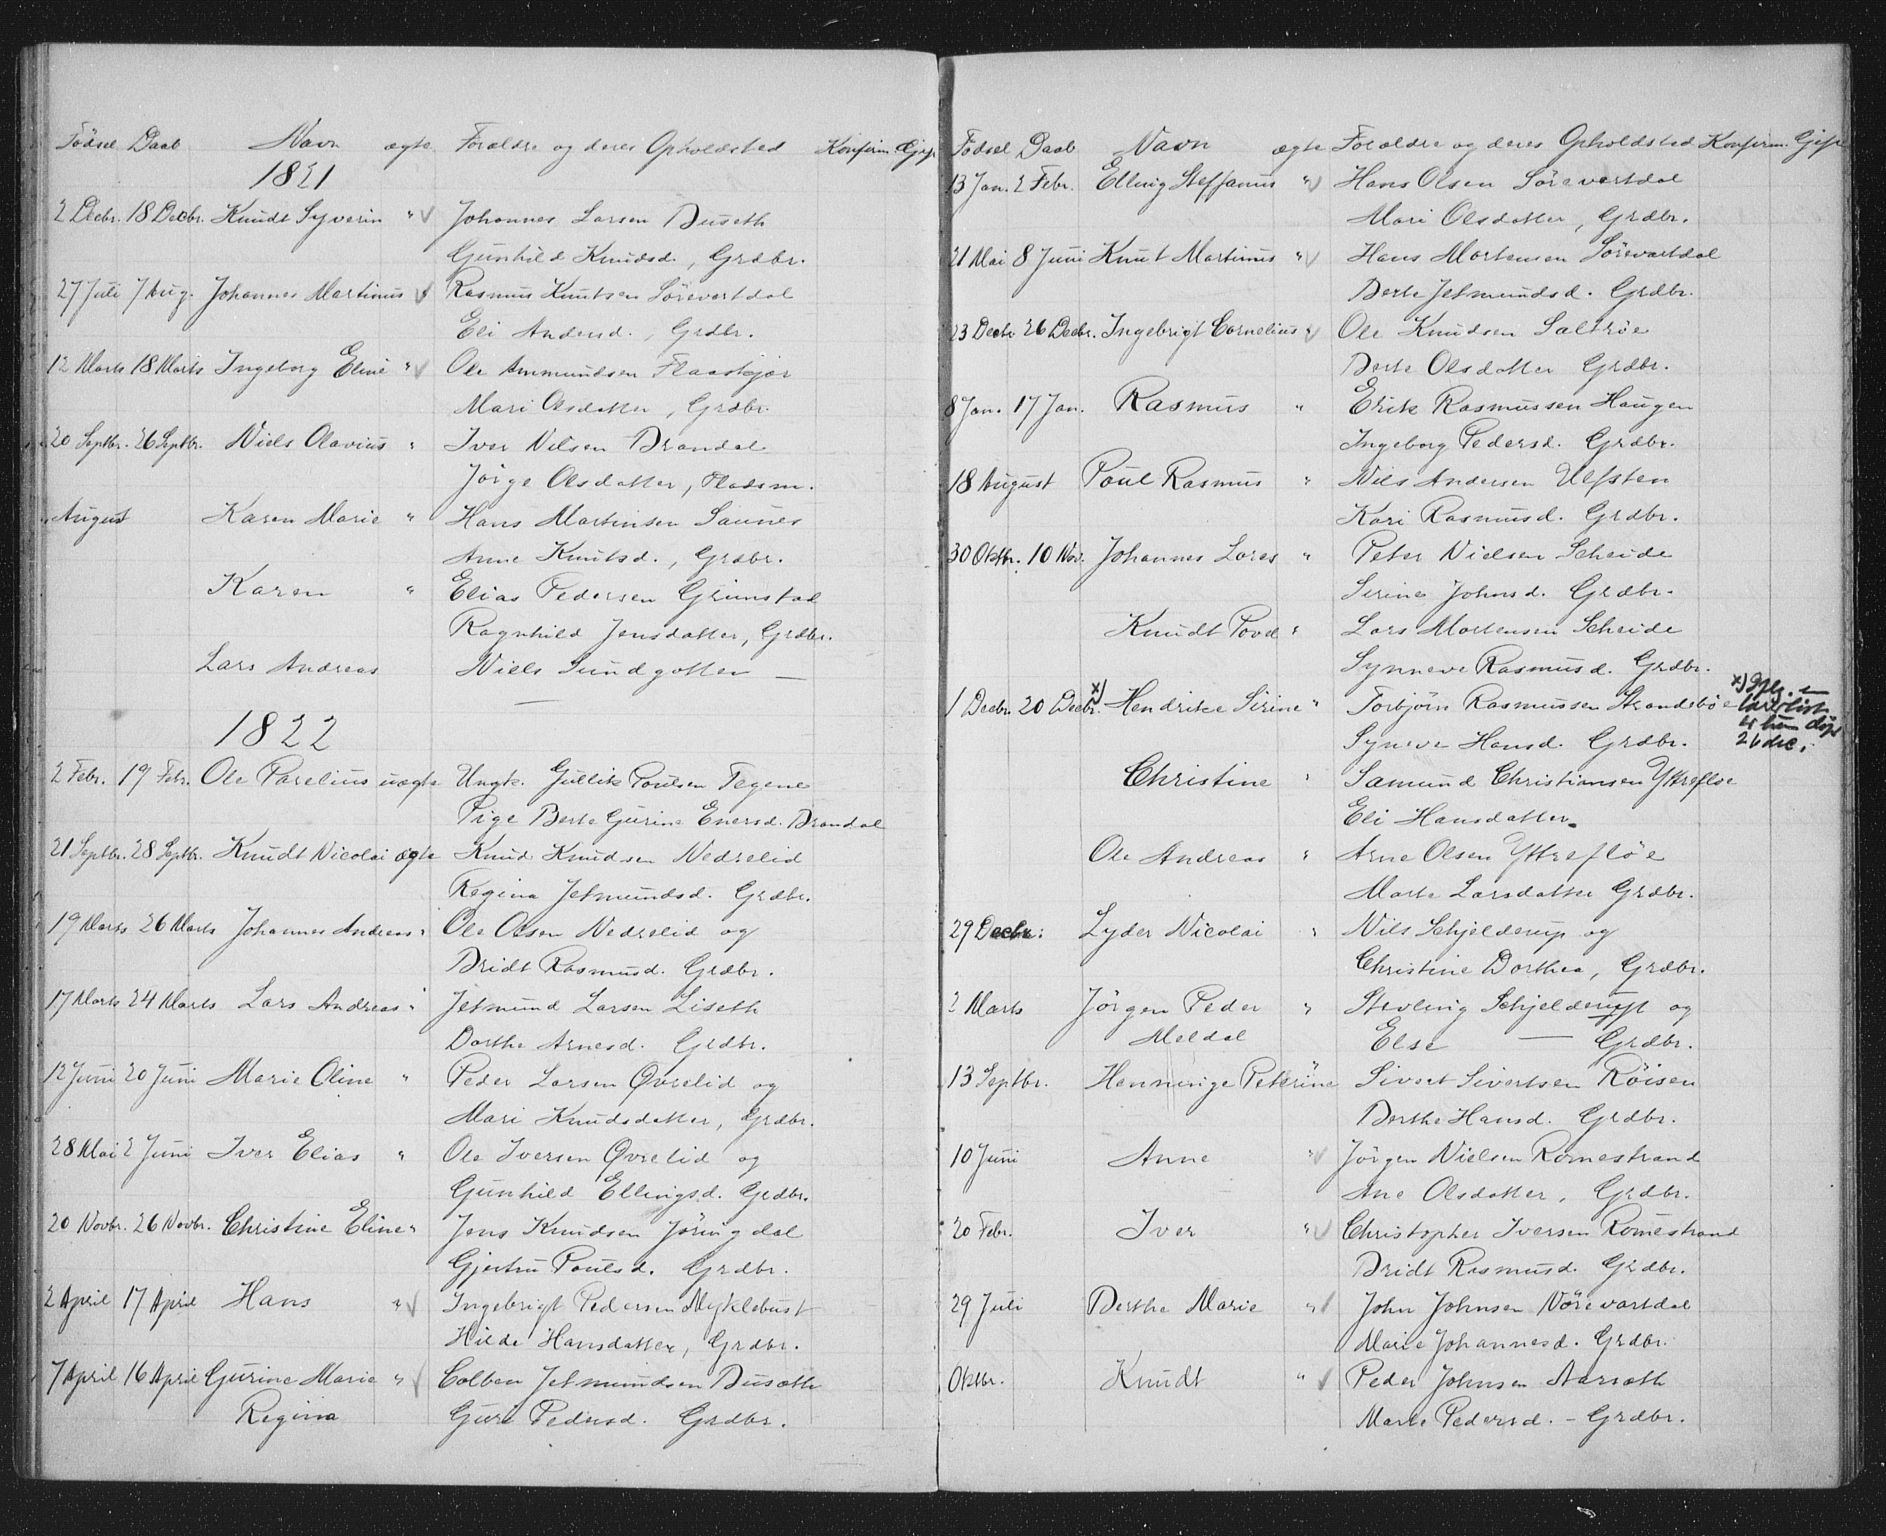 Födsel Daab Navn ægte Forældre og deres Opholdsted Konfirm. Gift
1821
2 Decbr. 18 Decbr. Knudt Syverin " v Johannes Larsen Duseth
Gunhild Knudsd., Grdbr.
27 Juli 7 Aug. Johannes Martinus " v Rasmus Knutsen Sörevartdal
Eli Andersd., Grdbr.
12 Marts 18 Marts Ingeborg Eline " v Ole Ammundsen Flaaskjær
Mari Olsdatter, Grdbr.
20 Septbr. 26 Septbr. Niels Olavius " Iver Nilsen Brandal
Jörge Olsdatter, Pladsm.
" August Karen Marie " Hans Martinsen Saunes
Anne Knutsd., Grdbr.
Karen " Elias Pedersen Grimstad
Ragnhild Jensdatter, Grdbr.
Lars Andreas Niels Sundgotten —
1822
2 Febr. 19 Febr. Ole Parelius uægte Ungk. Gullik Poulsen Tegene
Pige Berte Gurine Enersd. Brandal
21 Septbr. 28 Septbr. Knudt Nicolai ægte Knud Knudsen Nedrelid
Regina Jetmundsd. Grdbr.
19 Marts 26 Marts Johannes Andreas " Ole Olsen Nedrelid og
Bridt Rasmusd. Grdbr.
17 Marts 24 Marts Lars Andreas " Jetmund Larsen Liseth
Dorthe Arnesd. Grdbr.
12 Juni 20 Juni Marie Oline " Peder Larsen Øvrelid og
Mari Knudsdatter, Grdbr.
28 Mai 2 Juni Iver Elias " Ole Iversen Øvrelid og
Gunhild Ellingsd. Grdbr.
20 Novbr. 26 Novbr. Christine Eline " Jens Knudsen Jöringdal
Gjertru Poulsd. Grdbr.
2 April 17 April Hans " v Ingebrigt Pedersen Myklebust
Hilde Hansdatter, Grdbr.
7 April 16 April Gurine Marie " v Colben Jetmundsen Dusæth
Regina Guri Pedersd. Grdbr.
Födsel Daab Navn ægte Forældre og deres Opholdsted Konfirm. Gift
13 Jan. 2 Febr. Elling Steffanus " v Hans Olsen Sörevartdal
Mari Olsdatter, Grdbr.
21 Mai 8 Juni Knut Martinus " v Hans Mortensen Sörevartdal
Berte Jetmundsd. Grdbr.
23 Decbr 26 Decbr. Ingebrigt Cornelius " v Ole Knudsen Saltröe
Berte Olsdatter Grdbr.
8 Jan. 17 Jan. Rasmus " Erik Rasmussen Haugen
Ingeborg Pedersd. Grdbr.
18 August Poul Rasmus " Nils Andersen Ulfsten
Kari Rasmusd. Grdbr.
30 Oktbr. 10 Nov. Johannes Lores " Peter Nielsen Scheide
Serine Johnsd. Grdbr.
Knudt Povel " Lars Mortensen Scheide
Synneve Rasmusd. Grdbr.
1 Decbr 20 Decbr. x) Hendrike Sirine " Torbjörn Rasmussen Strandebö x) Iflg. en
Syneve Hansd. Grdbr. er hun döpt
26 dec.
Christine " Samund Christiansen Yttreflöe
Eli Hansdatter
Ole Andreas " Arne Olsen Yttreflöe
Marte Larsdatter Grdbr.
29 Decbr: Lyder Nicolai " Nils Schjelderup og
Christine Dorthea, Grdbr.
2 Marts Jörgen Peder " Stevling Schjelderup og
Meldal Else — Grdbr.
13 Septbr. Henninge Peterine Sivert Sivertsen Röisen
Berthe Hansd. Grdbr.
10 Juni Anne " v Jörgen Nielsen Romestrand
Ane Olsdatter, Grdbr.
20 Febr. Iver " v Christopher Iversen Romestrand
Bridt Rasmusd. Grdbr.
29 Juli Berthe Marie " v John Johnsen Nörevartdal
Marie Johannesd. Grdbr.
Oktbr. Knudt " v Peder Johnsen Aarsæth
Marte Pedersd. – Grdbr.